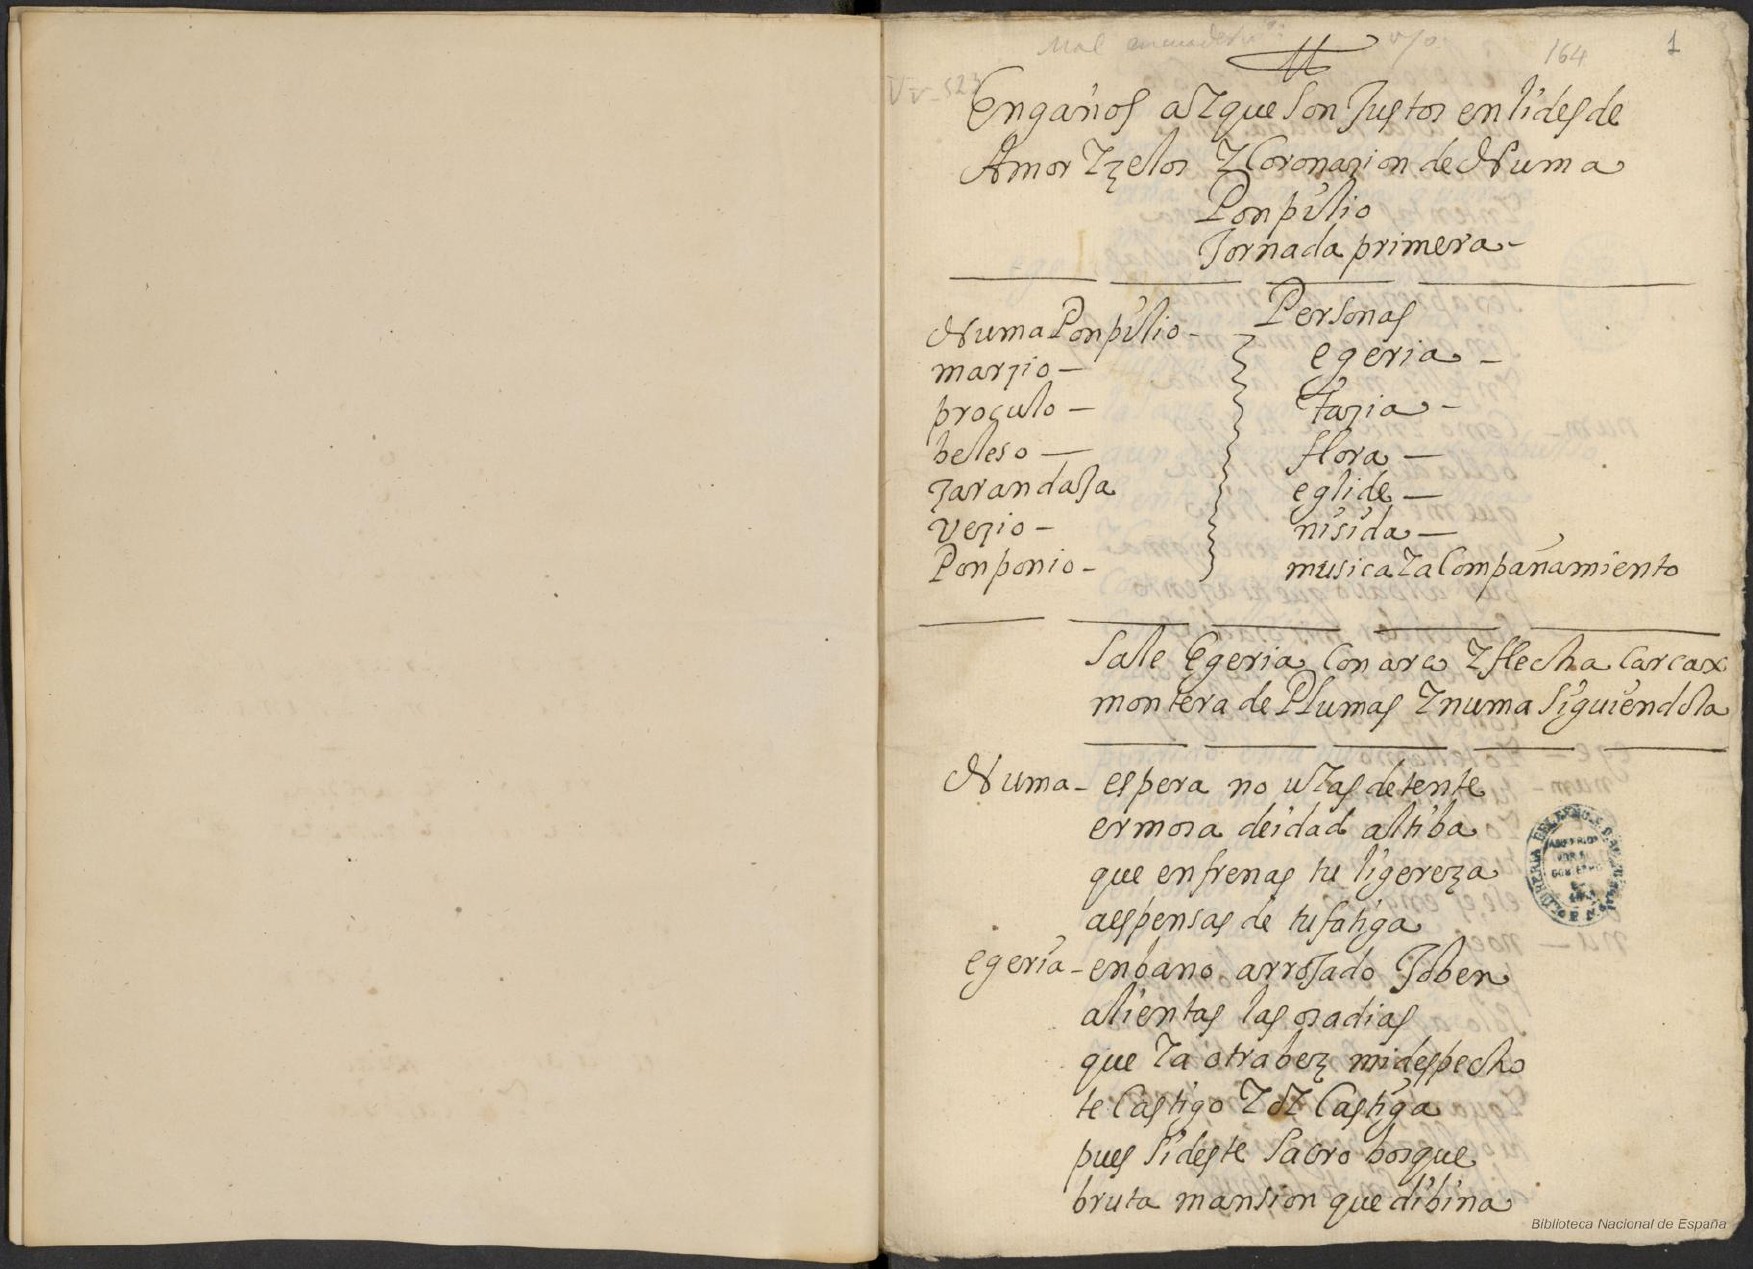 164
1
Engaños ay que son Justos en lides de
Amor y zelos y Coronazion de Numa
Ponpilio
Jornada primera
Personas
Numa Ponpilio
marzio
proculo
beleso
zarandaja
vezio
Ponponio
egeria
tazia
flora
eglide
nisida
musica y aCompañamiento
Sale Egeria Con arco y flecha Carcax
montera de Plumas y numa Siguiendola
Numa - espera no uyas detente
ermosa deidad altiba
que enfrenas tu ligereza
aespensas de tu fatiga
egeria - enbano arrojado Joben
alientas las osadias
que ya otra bez mi despecho
te Castigo y oy Castiga
pues Si deste Sacro bosque
bruta mansion que dibina
Biblioteca Nacional de España